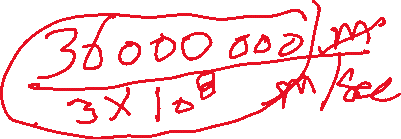 36000 000 m
3 × 10⁸ m/sec